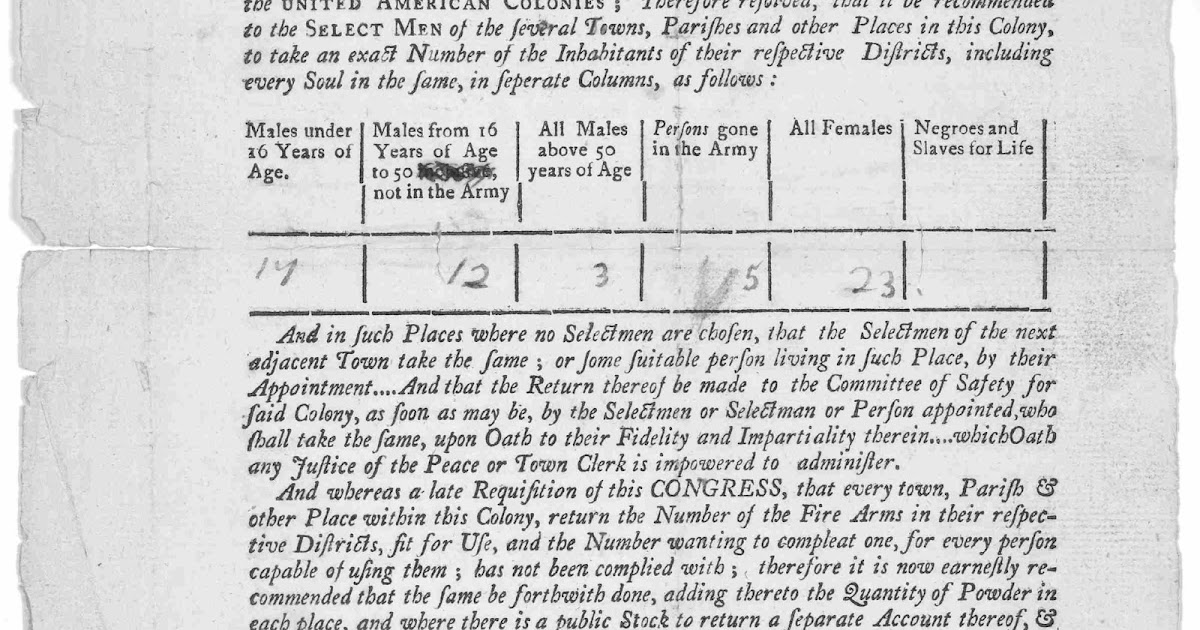 the UNITED AMERICAN COLONIES ; Therefore reſolved, that it be recommended
to the SELECT MEN of the ſeveral Towns, Pariſhes and other Places in this Colony,
to take an exact Number of the Inhabitants of their reſpective Diſtricts, including
every Soul in the ſame, in ſeperate Columns, as follows :
Males under 16 Years of Age. | Males from 16 Years of Age to 50 not in the Army | All Males above 50 years of Age | Perſons gone in the Army | All Females | Negroes and Slaves for Life
17 | 12 | 3 | 5 | 23
And in ſuch Places where no Selectmen are choſen, that the Selectmen of the next
adjacent Town take the ſame ; or ſome ſuitable perſon living in ſuch Place, by their
Appointment....And that the Return thereof be made to the Committee of Safety for
ſaid Colony, as ſoon as may be, by the Selectmen or Selectman or Perſon appointed,who
ſhall take the ſame, upon Oath to their Fidelity and Impartiality therein....whichOath
any Juſtice of the Peace or Town Clerk is impowered to adminiſter.
And whereas a late Requiſition of this CONGRESS, that every town, Pariſh &
other Place within this Colony, return the Number of the Fire Arms in their reſpec-
tive Diſtricts, fit for Uſe, and the Number wanting to compleat one, for every perſon
capable of uſing them ; has not been complied with ; therefore it is now earneſtly re-
commended that the ſame be forthwith done, adding thereto the Quantity of Powder in
each place, and where there is a public Stock to return a ſeparate Account thereof, &